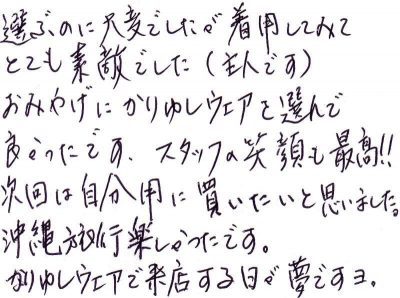 選ぶのに大変でしたが着用してみて
とても素敵でした(主人です)
おみやげにかりゆしウェアを選んで
良かったです、スタッフの笑顔も最高!!
次回は自分用に買いたいと思いました。
沖縄旅行楽しかったです。
かりゆしウェアで来店する日が夢ですヨ。